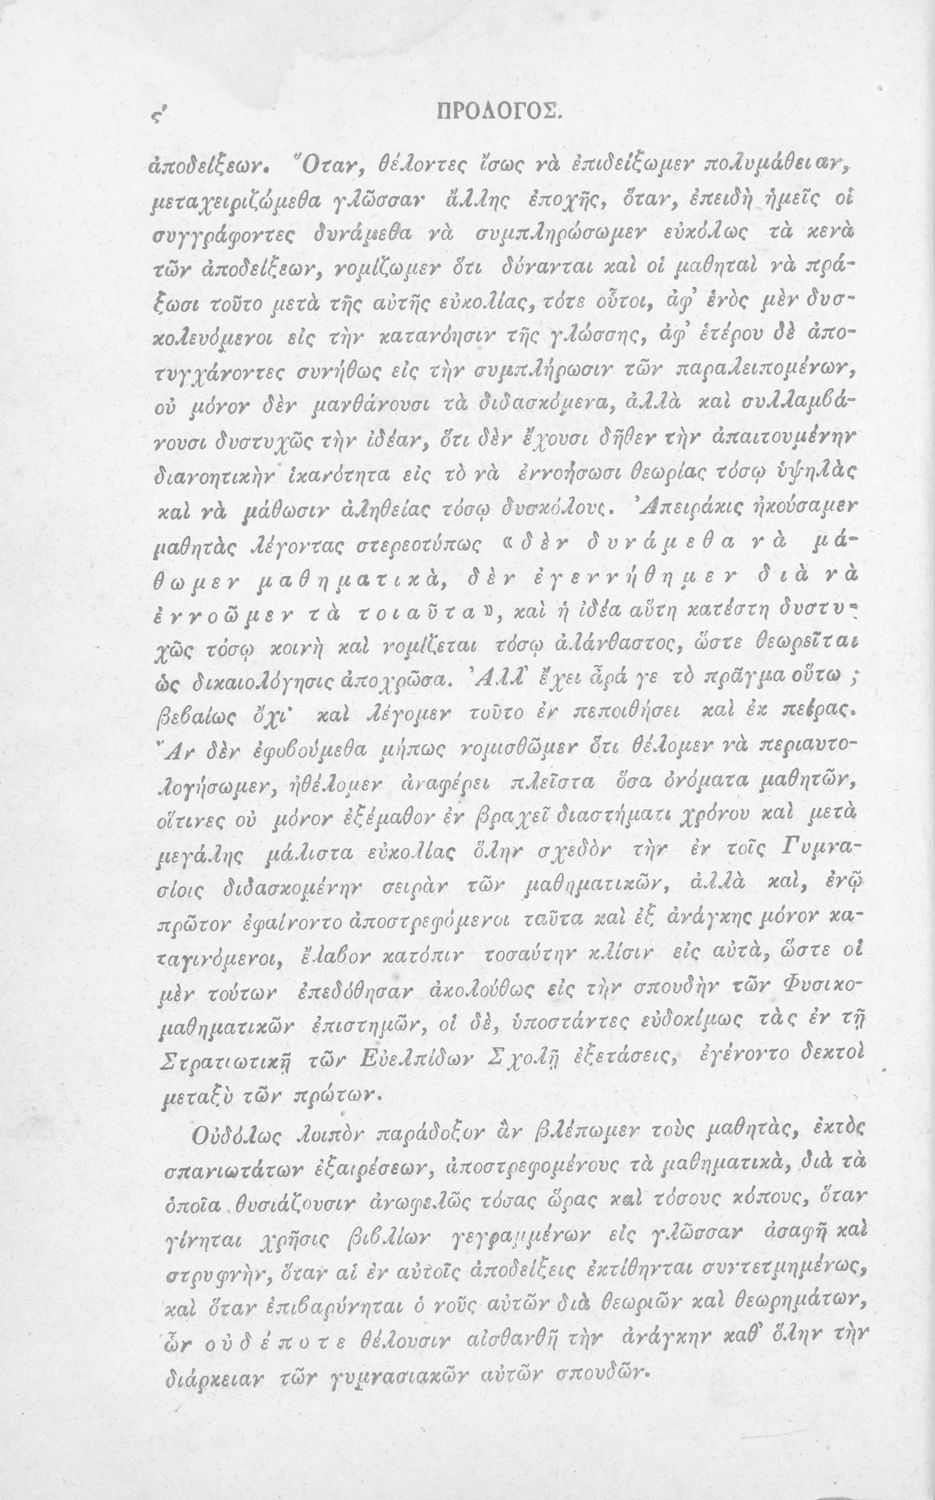 ς′ ΠΡΟΛΟΓΟΣ.
ἀποδείξεων. Ὅταν, θέλοντες ἴσως νὰ ἐπιδείξωμεν πολυμάθειαν,
μεταχειριζώμεθα γλῶσσαν ἄλλης ἐποχῆς, ὅταν, ἐπειδὴ ἡμεῖς οἱ
συγγράφοντες δυνάμεθα νὰ συμπληρώσωμεν εὐκόλως τὰ κενὰ
τῶν ἀποδείξεων, νομίζωμεν ὅτι δύνανται καὶ οἱ μαθηταὶ νὰ πρά-
ξωσι τοῦτο μετὰ τῆς αὐτῆς εὐκολίας, τότε οὗτοι, ἀφ’ ἑνὸς μὲν δυσ-
κολευόμενοι εἰς τὴν κατανόησιν τῆς γλώσσης, ἀφ’ ἑτέρου δὲ ἀπο-
τυγχάνοντες συνήθως εἰς τὴν συμπλήρωσιν τῶν παραλειπομένων,
οὐ μόνον δὲν μανθάνουσι τὰ διδασκόμενα, ἀλλὰ καὶ συλλαμβά-
νουσι δυστυχῶς τὴν ἰδέαν, ὅτι δὲν ἔχουσι δῆθεν τὴν ἀπαιτουμένην
διανοητικὴν ἱκανότητα εἰς τὸ νὰ ἐννοήσωσι θεωρίας τόσῳ ὑψηλὰς
καὶ νὰ μάθωσιν ἀληθείας τόσῳ δυσκόλους. Ἀπειράκις ἠκούσαμεν
μαθητὰς λέγοντας στερεοτύπως «δὲν δυνάμεθα νὰ μά-
θωμεν μαθηματικὰ, δὲν ἐγεννήθημεν διὰ νὰ
ἐννοῶμεν τὰ τοιαῦτα», καὶ ἡ ἰδέα αὕτη κατέστη δυστυ-
χῶς τόσῳ κοινὴ καὶ νομίζεται τόσῳ ἀλάνθαστος, ὥστε θεωρεῖται
ὡς δικαιολόγησις ἀποχρῶσα. Ἀλλ’ ἔχει ἆρά γε τὸ πρᾶγμα οὕτω ;
βεβαίως ὄχι· καὶ λέγομεν τοῦτο ἐν πεποιθήσει καὶ ἐκ πείρας.
Ἂν δὲν ἐφοβούμεθα μήπως νομισθῶμεν ὅτι θέλομεν νὰ περιαυτο-
λογήσωμεν, ἠθέλομεν ἀναφέρει πλεῖστα ὅσα ὀνόματα μαθητῶν,
οἵτινες οὐ μόνον ἐξέμαθον ἐν βραχεῖ διαστήματι χρόνου καὶ μετὰ
μεγάλης μάλιστα εὐκολίας ὅλην σχεδὸν τὴν ἐν τοῖς Γυμνα-
σίοις διδασκομένην σειρὰν τῶν μαθηματικῶν, ἀλλὰ καὶ, ἐνῷ
πρῶτον ἐφαίνοντο ἀποστρεφόμενοι ταῦτα καὶ ἐξ ἀνάγκης μόνον κα-
ταγινόμενοι, ἔλαβον κατόπιν τοσαύτην κλίσιν εἰς αὐτὰ, ὥστε οἱ
μὲν τούτων ἐπεδόθησαν ἀκολούθως εἰς τὴν σπουδὴν τῶν Φυσικο-
μαθηματικῶν ἐπιστημῶν, οἱ δὲ, ὑποστάντες εὐδοκίμως τὰς ἐν τῇ
Στρατιωτικῇ τῶν Εὐελπίδων Σχολῇ ἐξετάσεις, ἐγένοντο δεκτοὶ
μεταξὺ τῶν πρώτων.
Οὐδόλως λοιπὸν παράδοξον ἂν βλέπωμεν τοὺς μαθητὰς, ἐκτὸς
σπανιωτάτων ἐξαιρέσεων, ἀποστρεφομένους τὰ μαθηματικὰ, διὰ τὰ
ὁποῖα θυσιάζουσιν ἀνωφελῶς τόσας ὥρας καὶ τόσους κόπους, ὅταν
γίνηται χρῆσις βιβλίων γεγραμμένων εἰς γλῶσσαν ἀσαφῆ καὶ
στρυφνὴν, ὅταν αἱ ἐν αὐτοῖς ἀποδείξεις ἐκτίθηνται συντετμημένως,
καὶ ὅταν ἐπιβαρύνηται ὁ νοῦς αὐτῶν διὰ θεωριῶν καὶ θεωρημάτων,
ὧν οὐδέποτε θέλουσιν αἰσθανθῆ τὴν ἀνάγκην καθ’ ὅλην τὴν
διάρκειαν τῶν γυμνασιακῶν αὐτῶν σπουδῶν.